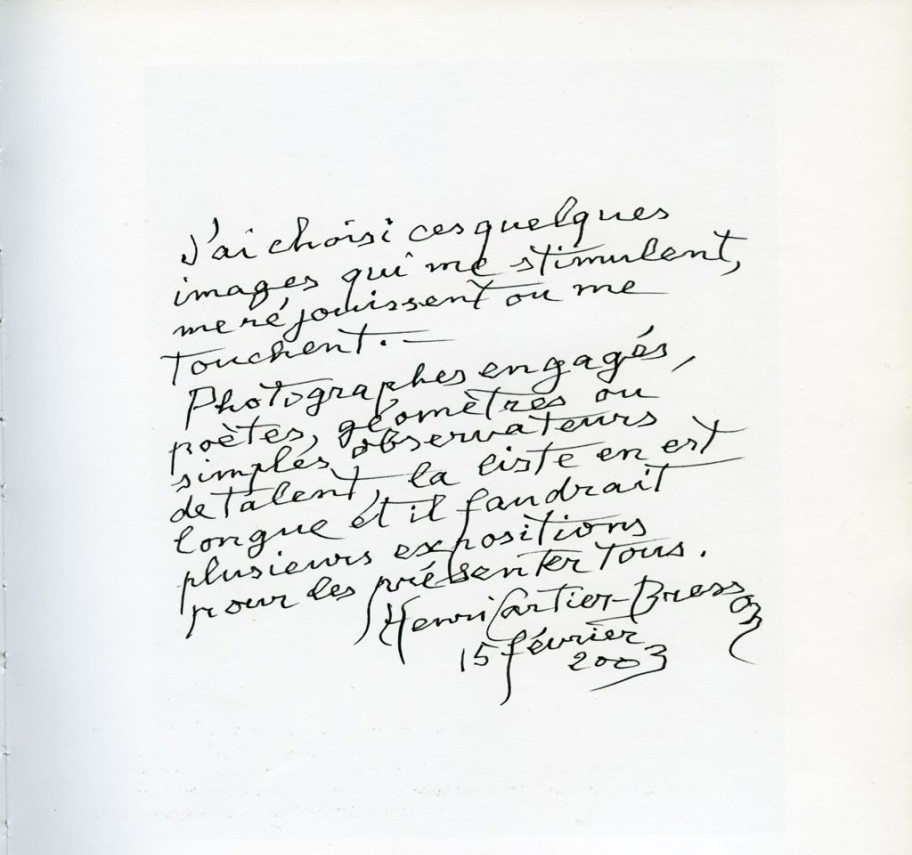 J'ai choisi ces quelques
images qui me stimulent,
me réjouissent ou me
touchent. —
Photographes engagés,
poètes, géomètres ou
simples observateurs
de talent, la liste en est
longue et il faudrait
plusieurs expositions
pour les présenter tous.
Henri Cartier-Bresson
15 février
2003